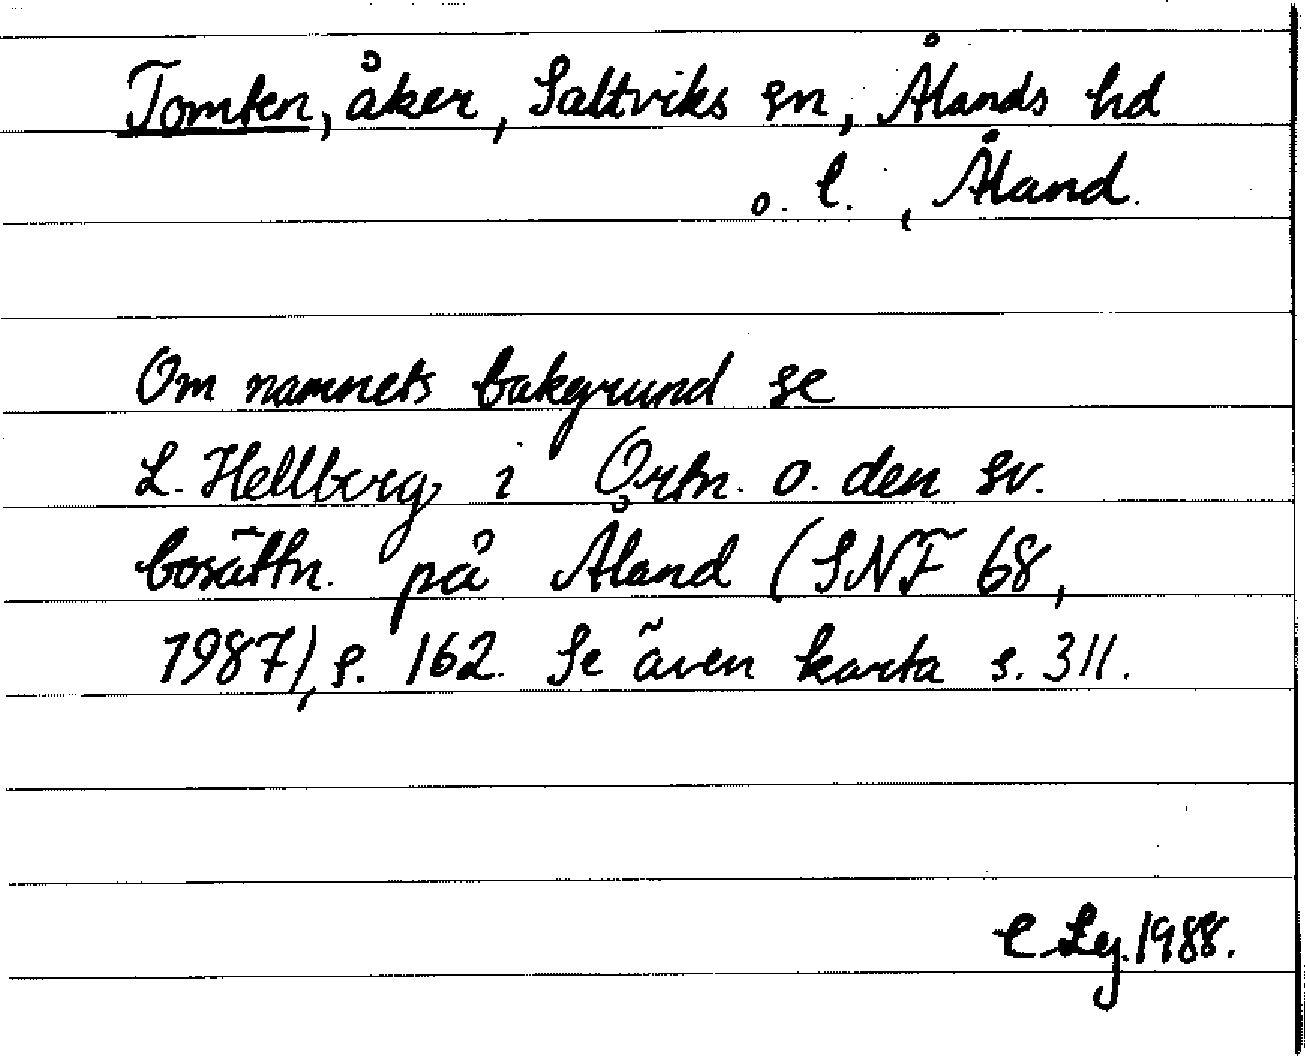 Tomten, åker, Saltviks sn, Ålands hd
o. l. , Åland.
Om namnets bakgrund se
L. Hellberg i Ortn. o. den sv.
bosättn. på Åland (SNF 68,
1987), s. 162. Se även karta s. 311.
1988.